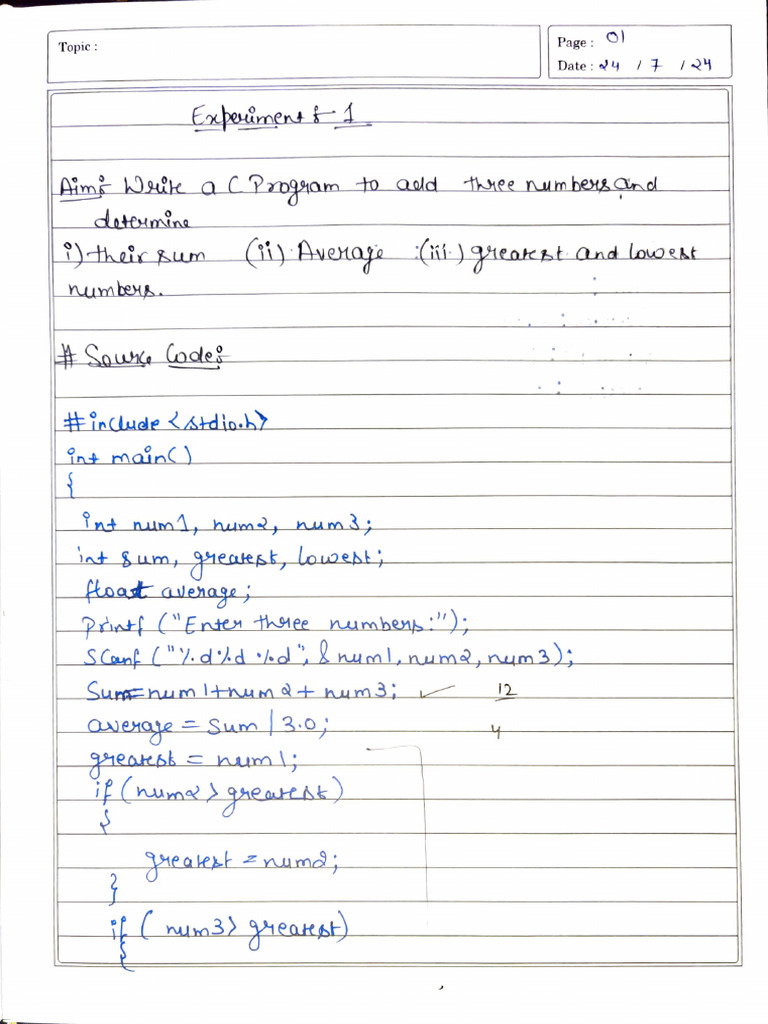 Topic :
Page : 01
Date : 24 / 7 / 24
Experiment :- 1
Aim: Write a C Program to add three numbers and
determine
i) their sum (ii) Average (iii) greatest and lowest
numbers.
# Source Code:
#include <stdio.h>
int main()
{
int num1, num2, num3;
int sum, greatest, lowest;
float average;
Printf ("Enter three numbers:");
Scanf ("%d%d %d", &num1, num2, num3);
Sum=num1+num2+ num3; ✓ 12
average = Sum / 3.0; 4
greatest = num1;
if (num2 > greatest)
{
greatest = num2;
}
if ( num3> greatest)
{